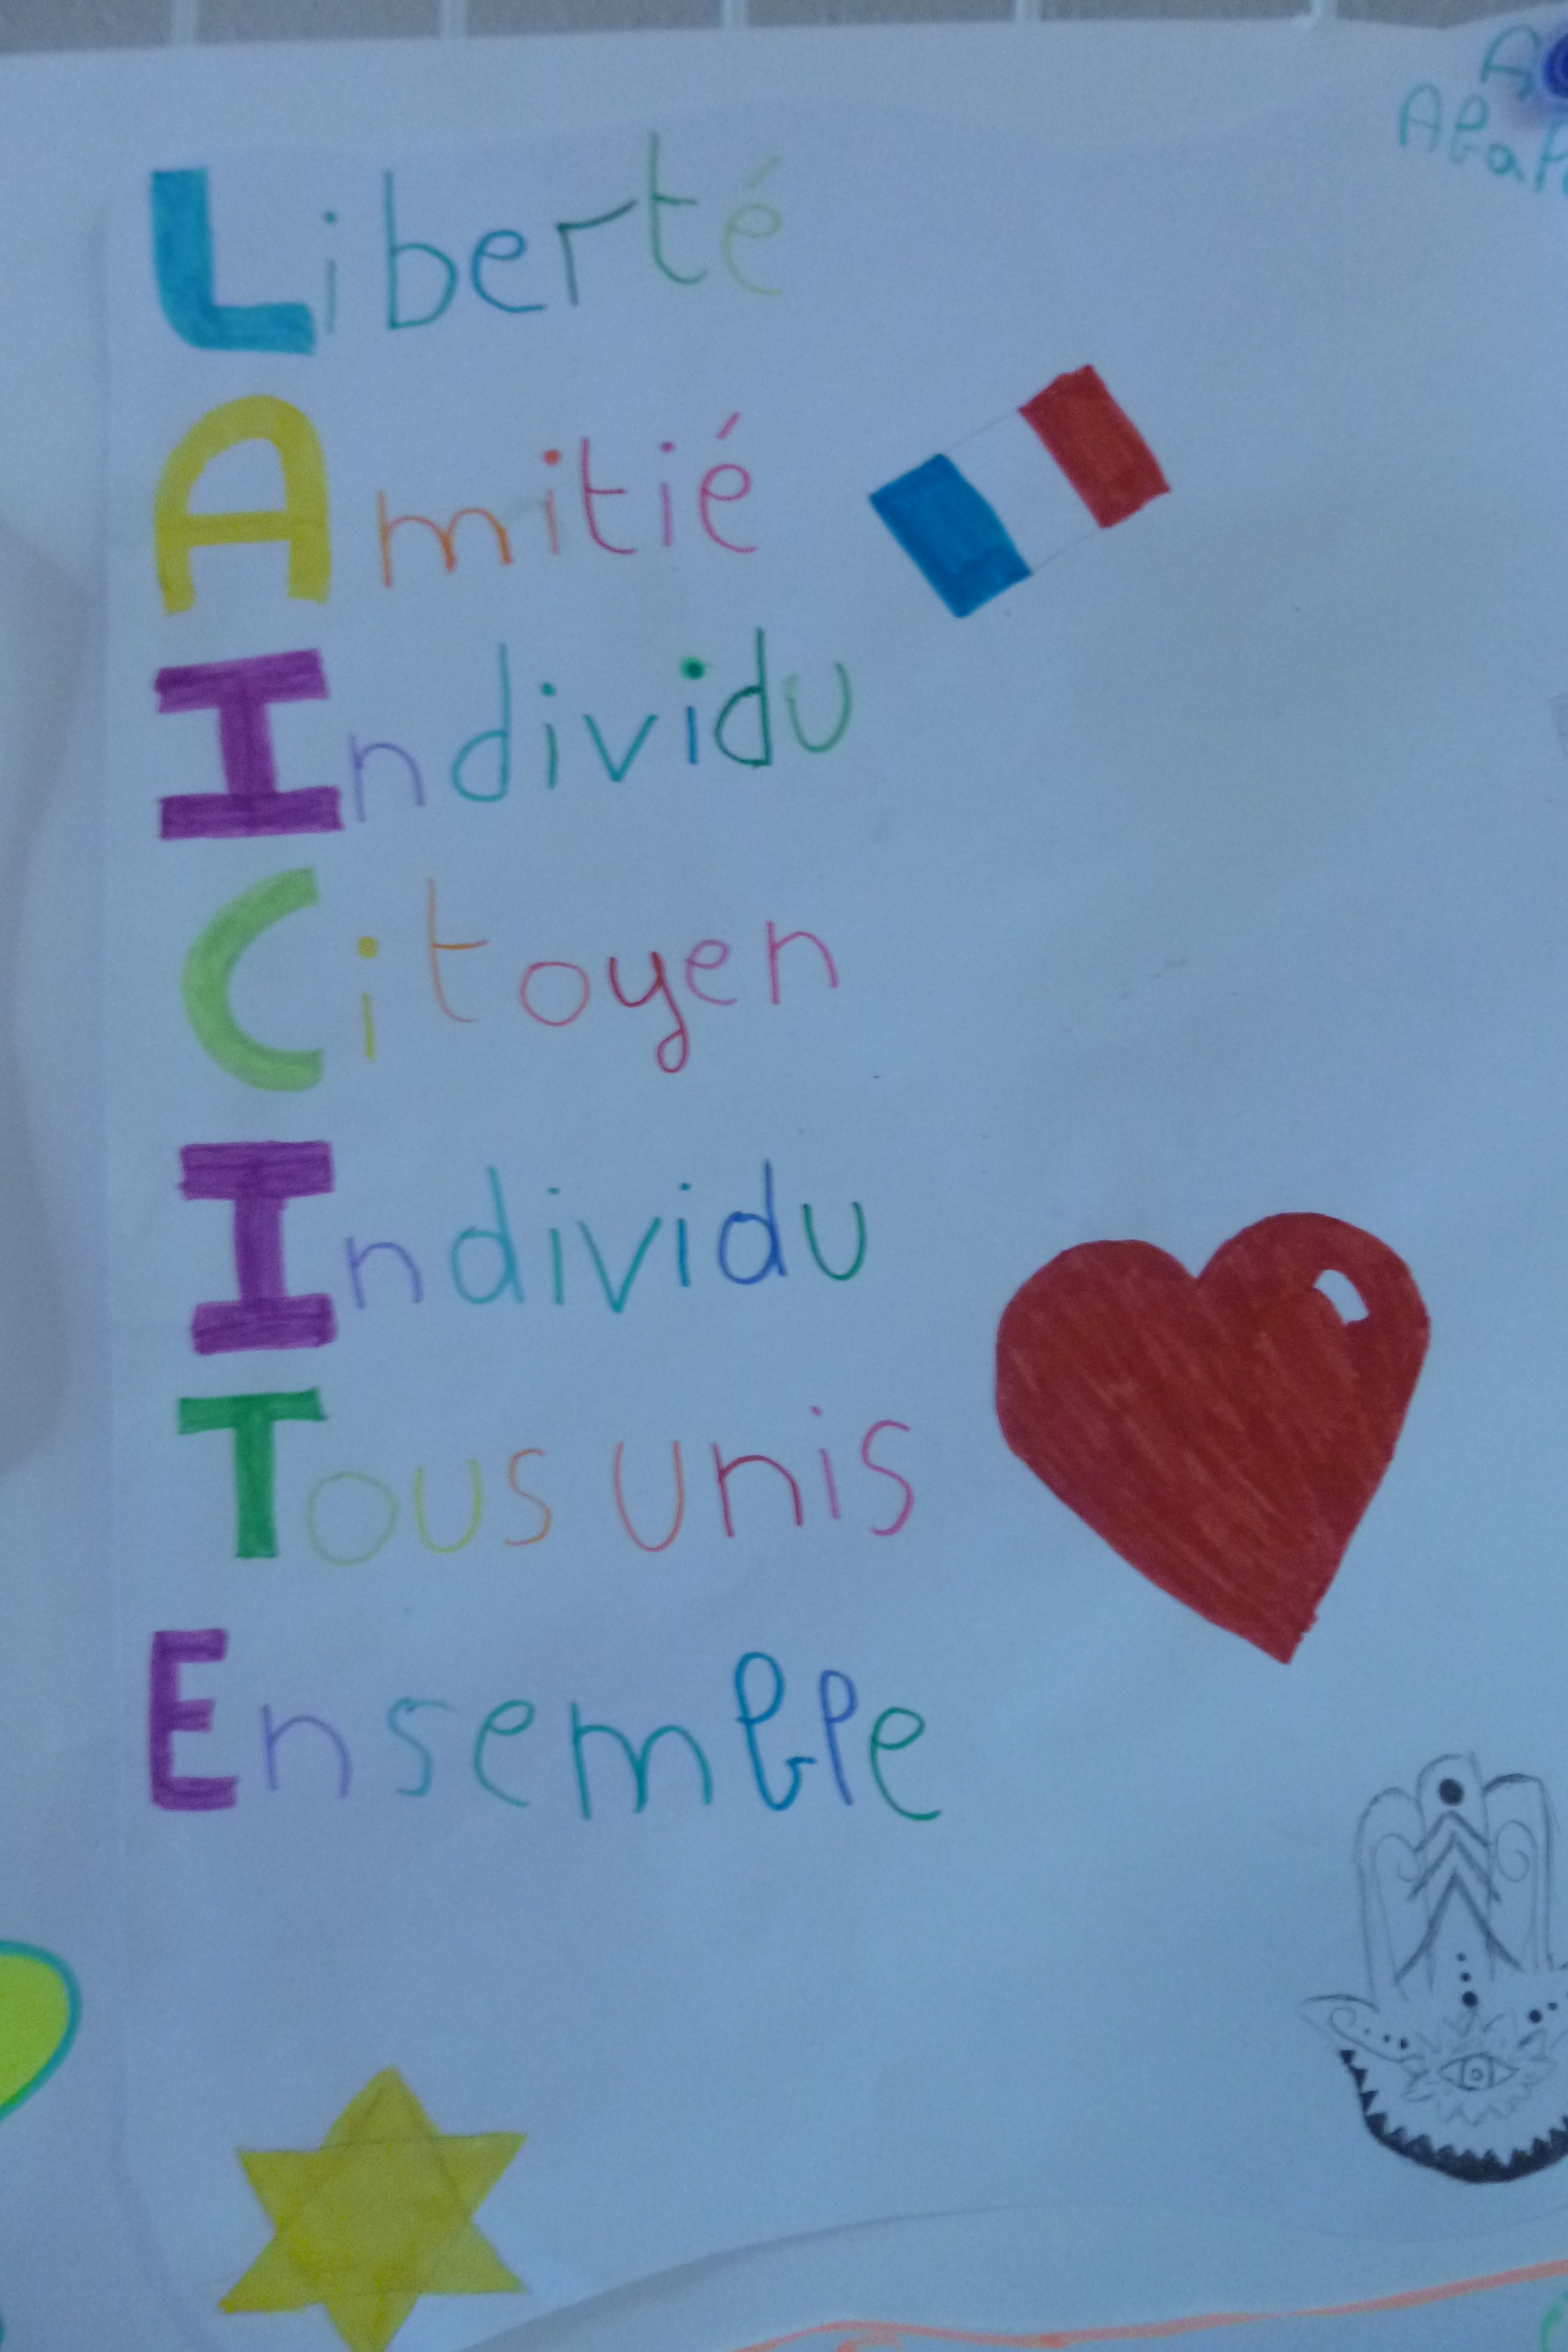 Liberté
Amitié
Individu
Citoyen
Individu
Tous unis
Ensemble